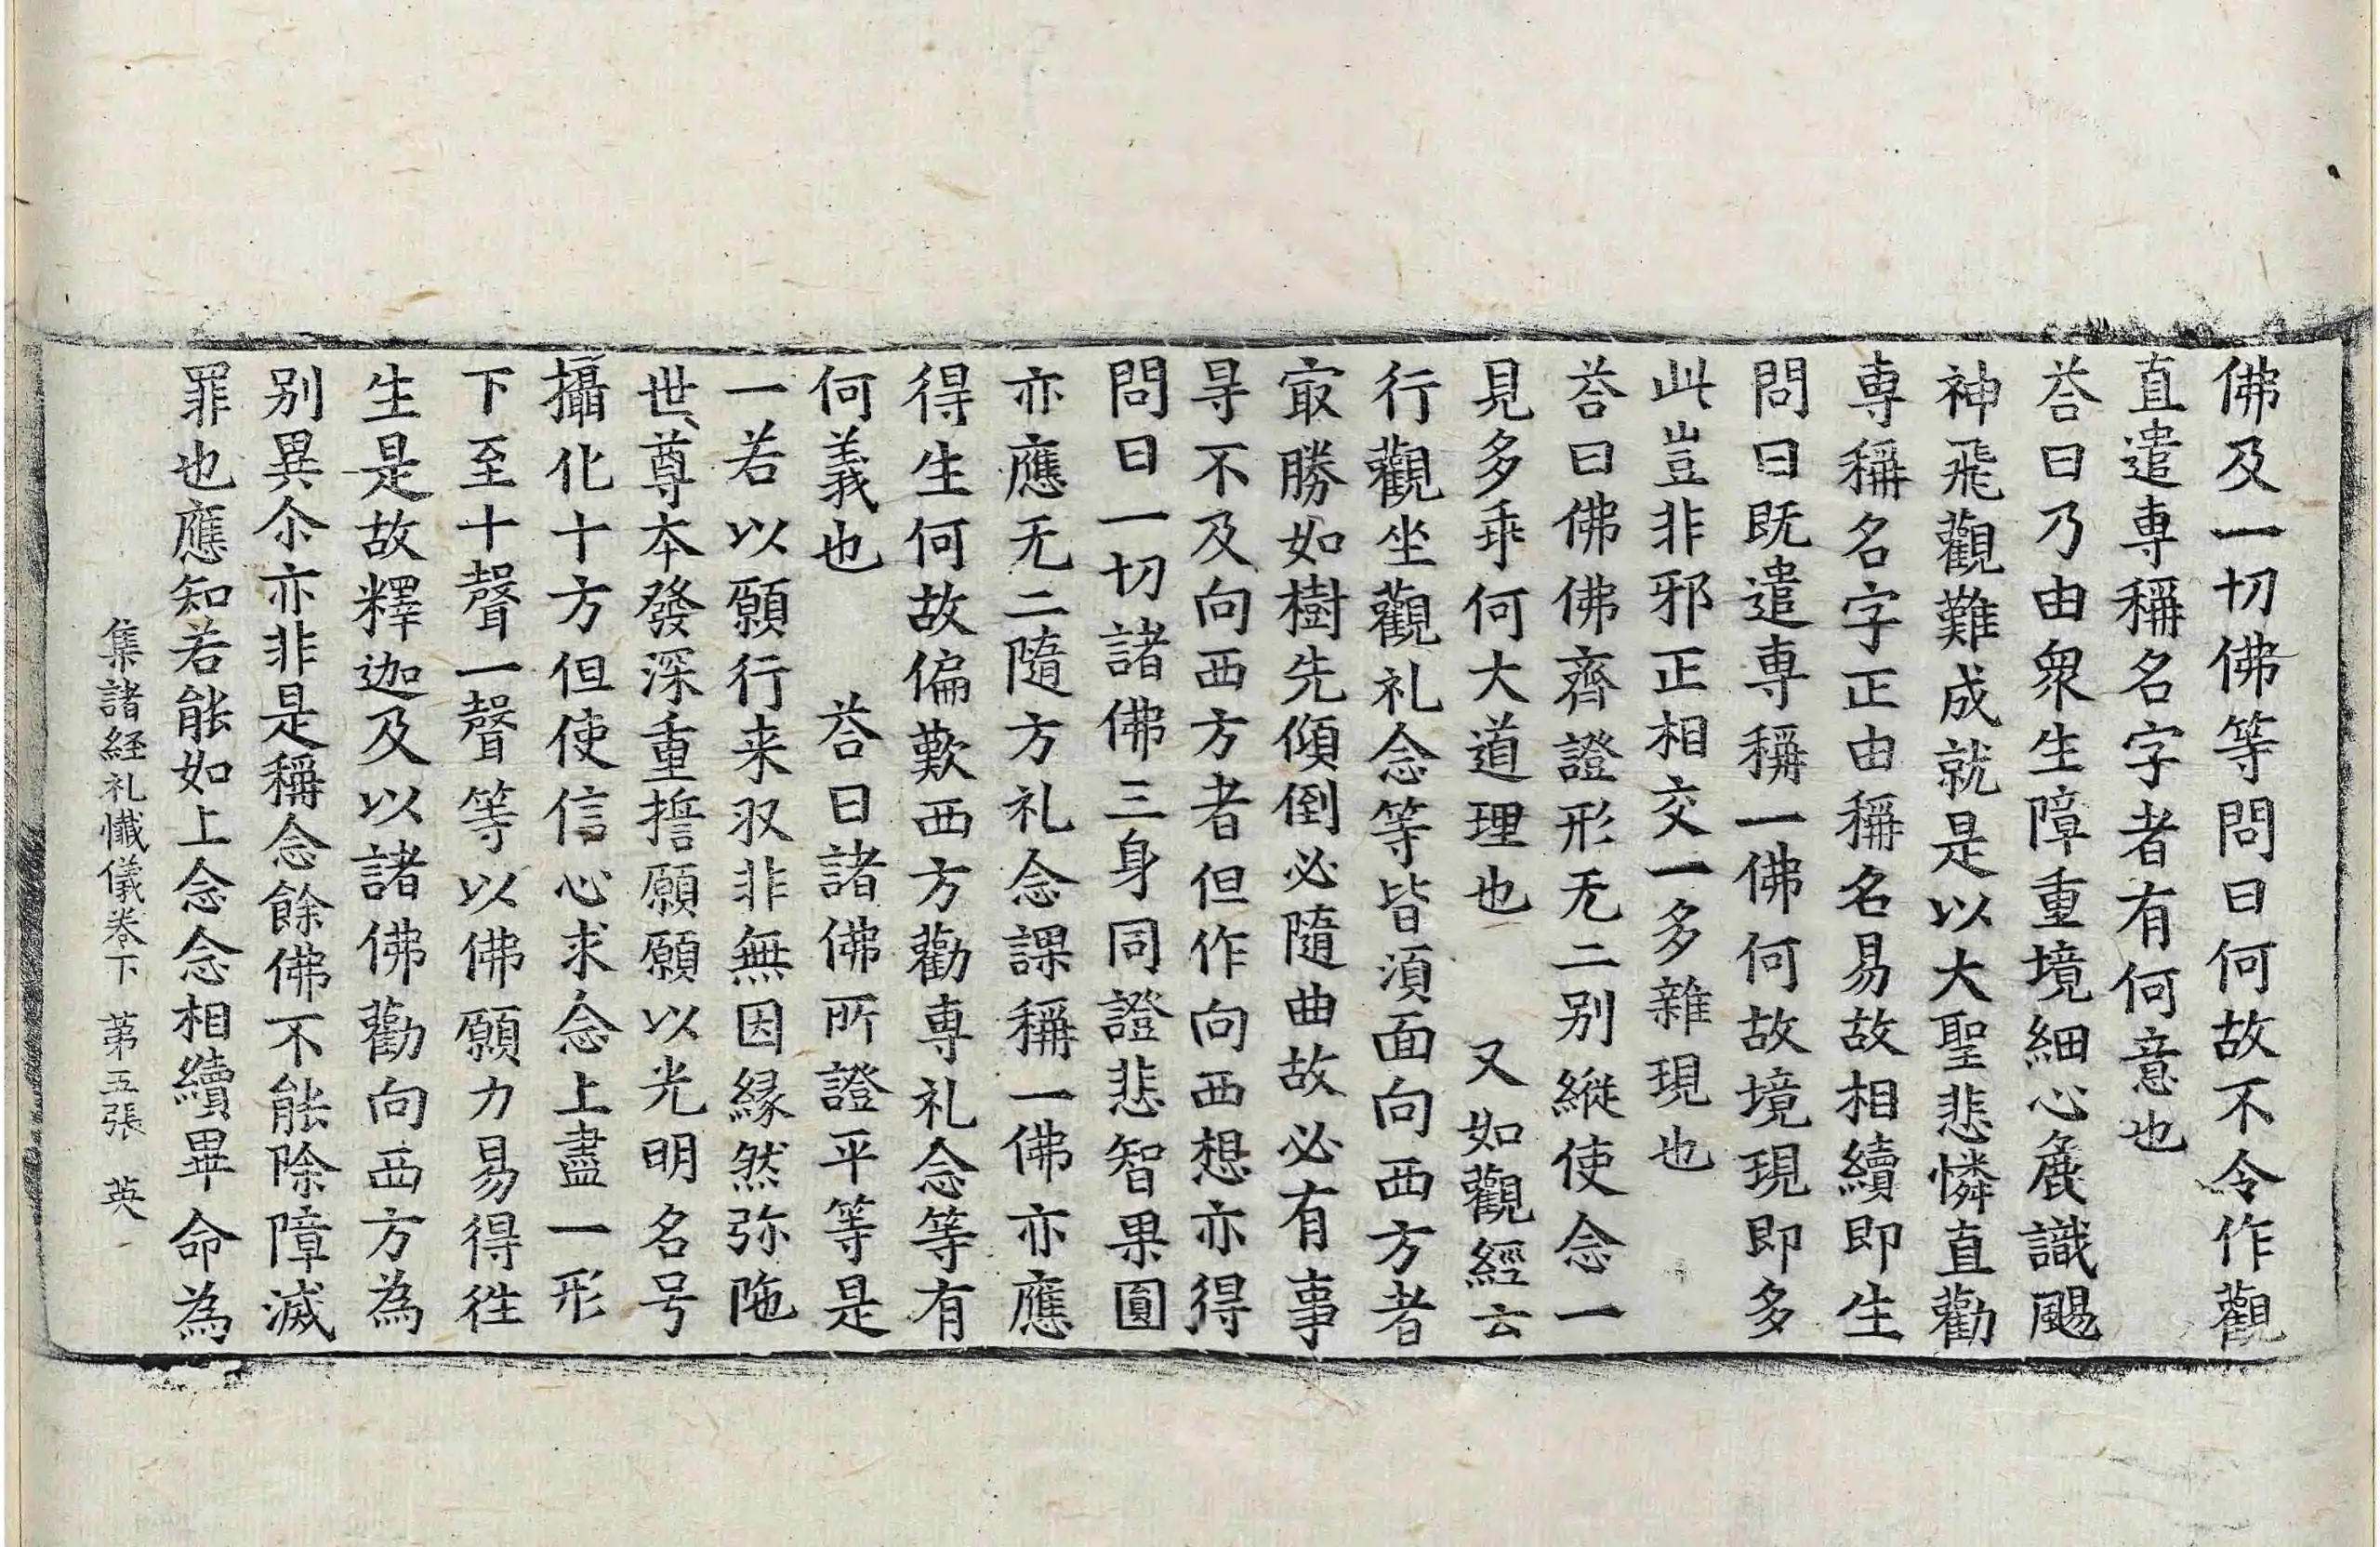 佛及一切佛等問曰何故不令作觀
直遣專稱名字者有何意也
荅曰乃由衆生障重境細心麁識颺
神飛觀難成就是以大聖悲憐直勸
專稱名字正由稱名易故相續即生
問曰既遣專稱一佛何故境現即多
此豈非邪正相交一多雜現也
荅曰佛佛齊證形无二别縱使念一
見多乖何大道理也　又如觀經云
行觀坐觀礼念等皆湏面向西方者
冣勝如樹先傾倒必隨曲故必有事
㝵不及向西方者但作向西想亦得
問曰一切諸佛三身同證悲智果圓
亦應无二隨方礼念課稱一佛亦應
得生何故偏歎西方勸專礼念等有
何義也　荅曰諸佛所證平等是
一若以願行来収非無因縁然弥陁
世尊本發深重誓願願以光明名号
攝化十方但使信心求念上盡一形
下至十聲一聲等以佛願力易得徃
生是故釋迦及以諸佛勸向西方為
别異尒亦非是稱念餘佛不能除障滅
罪也應知若能如上念念相續畢命為
集諸経礼懺儀卷下　苐五張　英